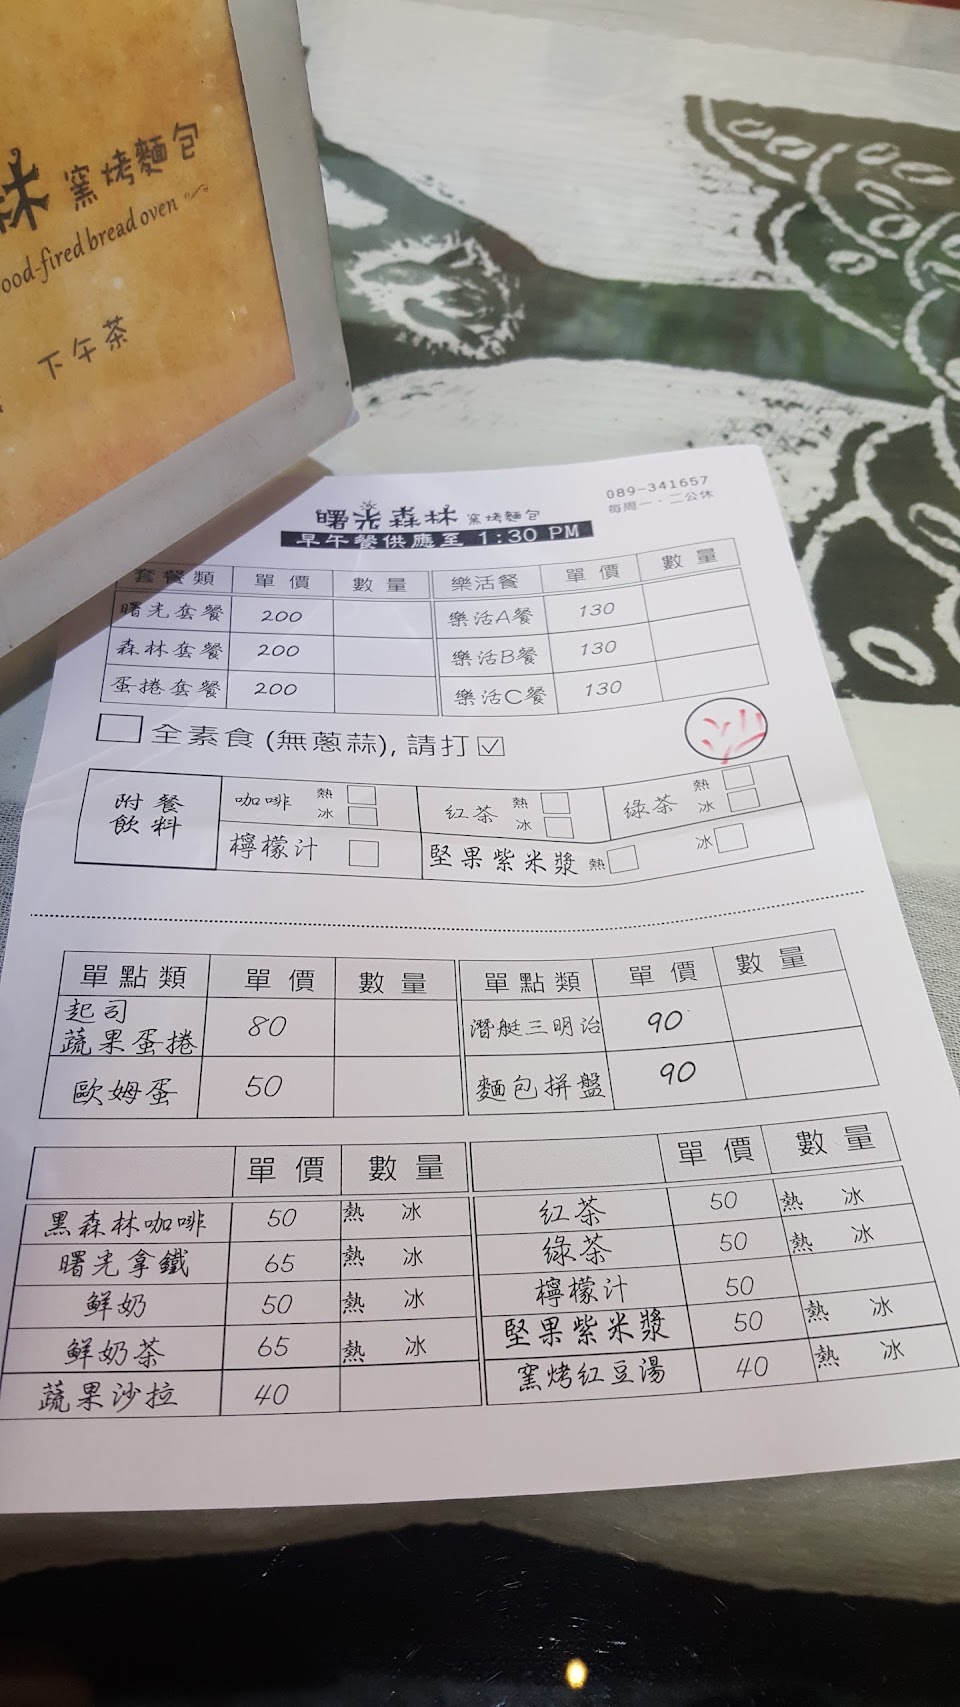 林 窯烤麵包
ood-fired bread oven
下午茶
089-341657
每周一．二公休
曙光森林 窯烤麵包
早午餐供應至 1:30 PM
套餐類 單價 數量 樂活餐 單價 數量
曙光套餐 200 樂活A餐 130
森林套餐 200 樂活B餐 130
蛋捲套餐 200 樂活C餐 130
全素食(無蔥蒜),請打☑
附餐飲料 咖啡 熱 冰 紅茶 熱 冰 綠茶 熱 冰
檸檬汁 堅果紫米漿 熱 冰
單點類 單價 數量 單點類 單價 數量
起司蔬果蛋捲 80 潛艇三明治 90
歐姆蛋 50 麵包拼盤 90
單價 數量 單價 數量
黑森林咖啡 50 熱 冰 紅茶 50 熱 冰
曙光拿鐵 65 熱 冰 綠茶 50 熱 冰
鮮奶 50 熱 冰 檸檬汁 50
鮮奶茶 65 熱 冰 堅果紫米漿 50 熱 冰
蔬果沙拉 40 窯烤紅豆湯 40 熱 冰